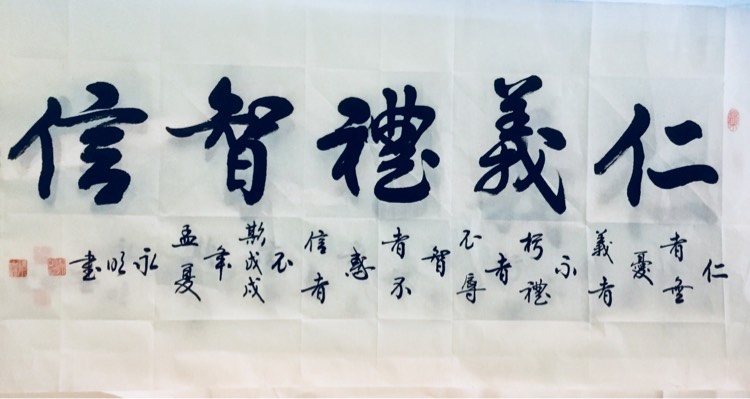 仁義禮智信
仁
者無
憂
義者
不
朽禮
者
不辱
智
者不
惑
信者
不
欺戊戌
年
孟夏
永
明
書